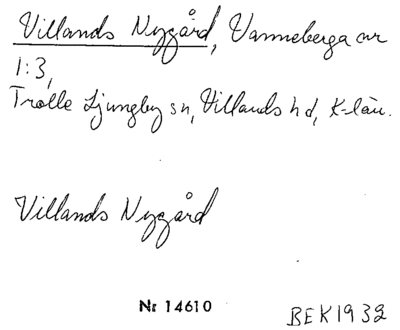 Villands Nygård, Vanneberga nr
1:3,
Trolle Ljungby sn, Villands hd, K-län.
Villands Nygård
Nr 14610
BEK1932